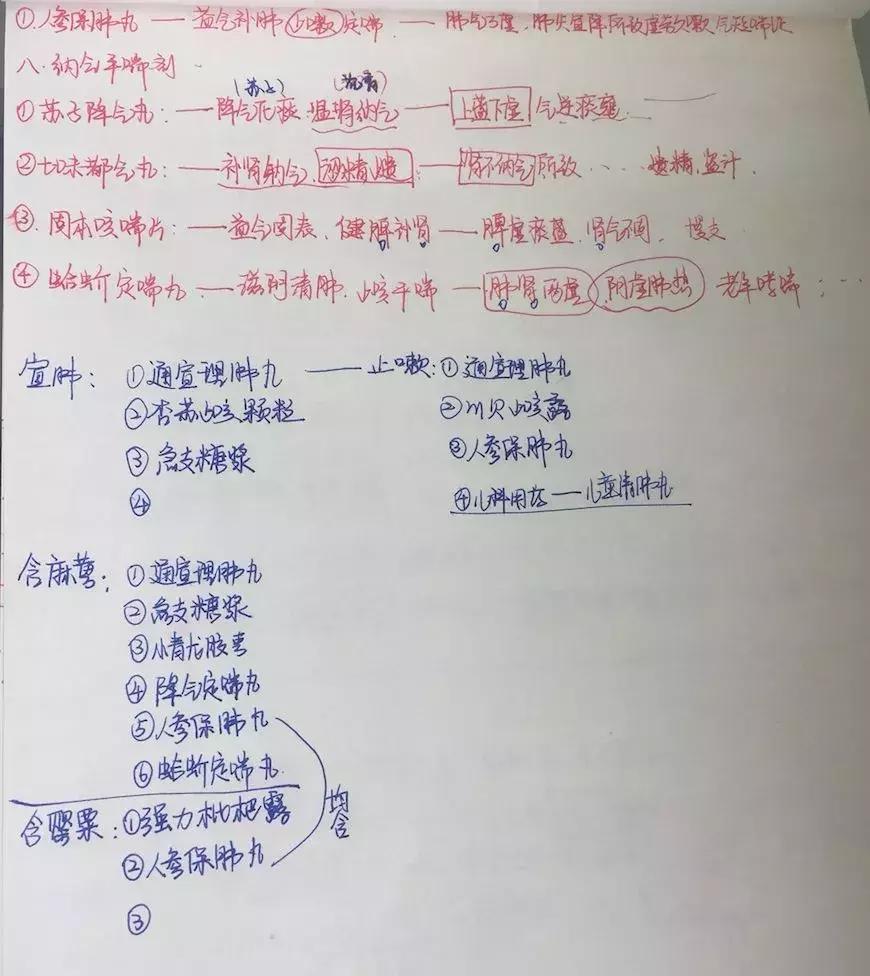 ①人参保肺丸 — 益气补肺 止嗽定喘 — 肺气亏虚,肺失宣降所致虚劳久嗽 气短喘促
八、纳气平喘剂
(苏子) (沉香)
①苏子降气丸:— 降气化痰.温肾纳气 — 上盛下虚 气逆痰壅 ——
②七味都气丸:— 补肾纳气 涩精止遗 — 肾不纳气 所致 ...... 遗精,盗汗.
③.固本咳喘片:— 益气固表、健脾补肾 — 脾虚痰盛、肾气不固. 慢支
④蛤蚧定喘丸.— 滋阴清肺.止咳平喘 — 肺肾两虚 阴虚肺热 老年哮喘;...
宣肺: ①通宣理肺丸 —— 止嗽:①通宣理肺丸
②杏苏止咳颗粒 ②川贝止咳露
③急支糖浆 ③人参保肺丸
④ ④儿科用药 — 儿童清肺丸
含麻黄: ①通宣理肺丸
②急支糖浆
③小青龙胶囊
④降气定喘丸
⑤人参保肺丸
⑥蛤蚧定喘丸.
均含
含罂粟:①强力枇杷露
②人参保肺丸
③